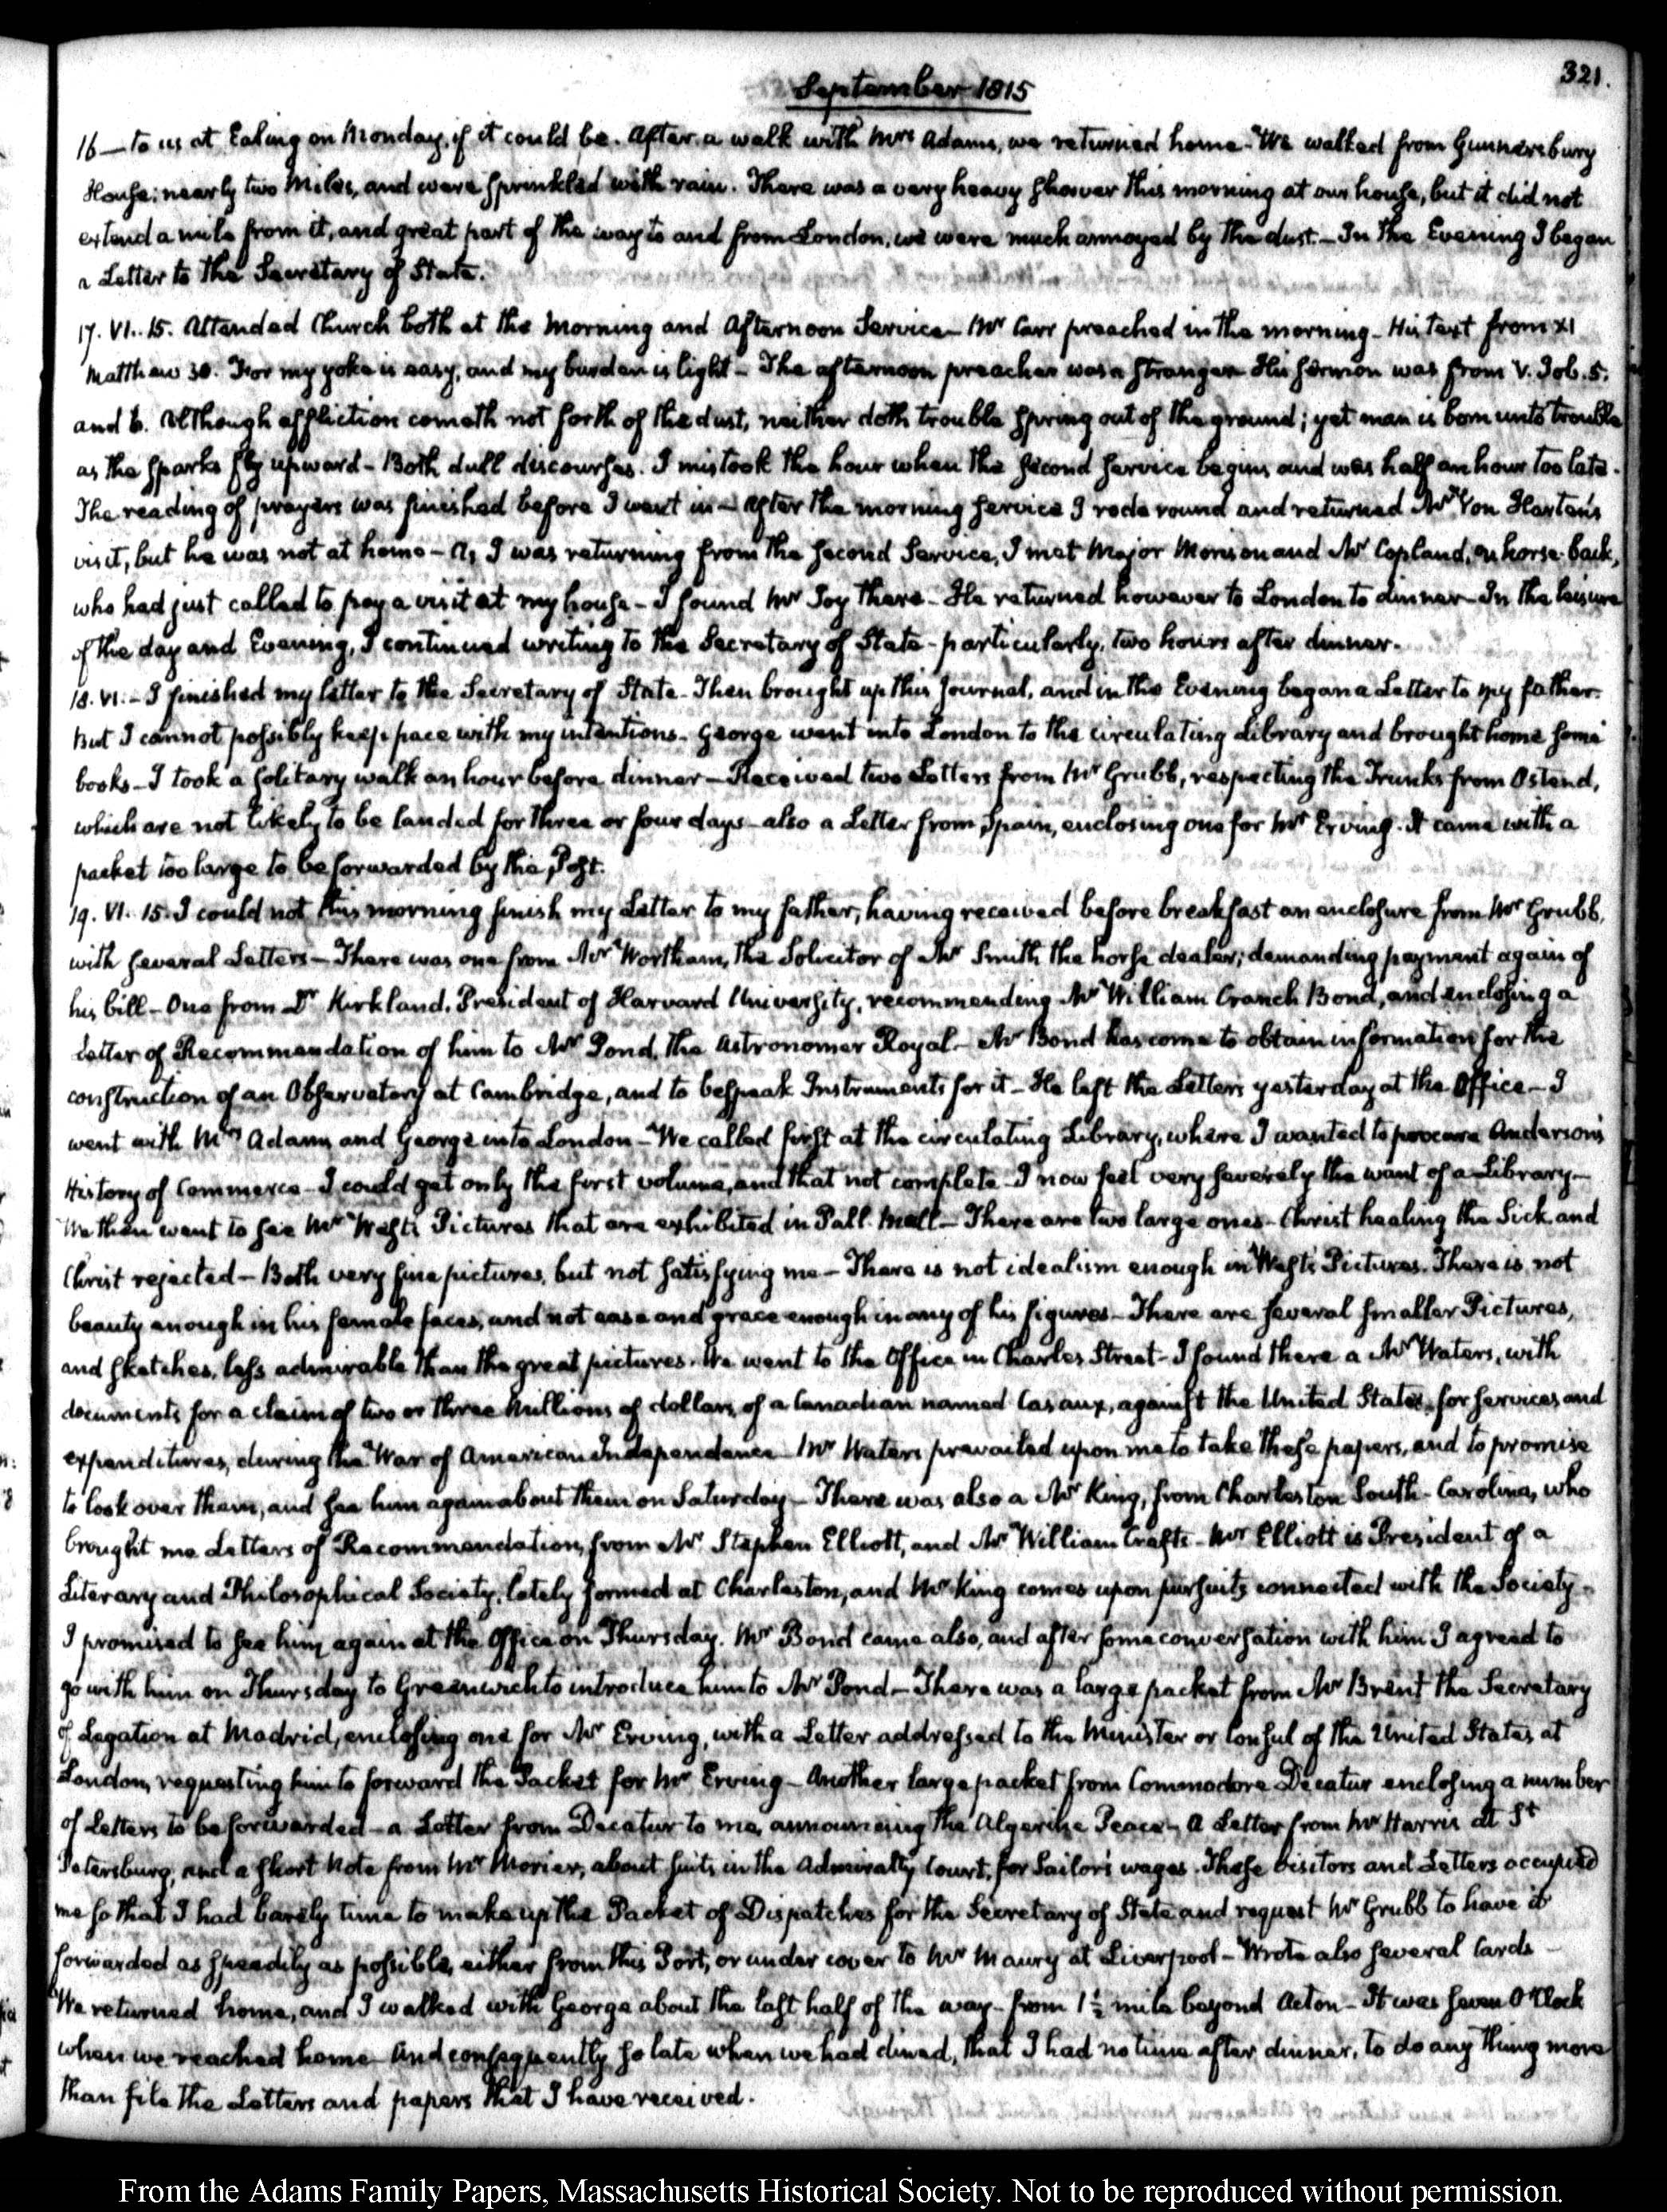 September 1815
321.
16 — to us at Ealing on Monday, if it could be. After a walk with Mrs Adams, we returned home - We walked from Gunnersbury
House; nearly two Miles, and were sprinkled with rain. There was a very heavy shower this morning at our house, but it did not
extend a mile from it, and great part of the way to and from London, we were much annoyed by the dust. - In the Evening I began
a Letter to the Secretary of State.
17. VI.. 15. Attended Church both at the Morning and Afternoon Service - Mr Carr preached in the morning - His text from XI
Matthew 30. For my yoke is easy, and my burden is light - The afternoon preacher was a stranger His sermon was from V. Job. 5.
and 6. Although affliction cometh not forth of the dust, neither doth trouble spring out of the ground; yet man is born unto trouble
as the sparks fly upward - Both dull discourses. I mistook the hour when the second service begins and was half an hour too late.
The reading of prayers was finished before I went in - After the morning service I rode round and returned Mr Von Harten's
visit, but he was not at home - As I was returning from the second Service, I met Major Monson and Mr Copland, on horse-back,
who had just called to pay a visit at my house - I found Mr Joy there - He returned however to London to dinner - In the leisure
of the day and Evening, I continued writing to the Secretary of State - particularly, two hours after dinner.
18. VI. - I finished my letter to the Secretary of State - Then brought up this Journal, and in the Evening began a Letter to my father.
But I cannot possibly keep pace with my intentions - George went into London to the circulating Library and brought home some
books - I took a solitary walk an hour before dinner - Received two Letters from Mr Grubb, respecting the Trunks from Ostend,
which are not likely to be landed for three or four days - also a Letter from Spain, enclosing one for Mr Erving. It came with a
packet too large to be forwarded by the Post.
19. VI. 15. I could not this morning finish my Letter to my father, having received before breakfast an enclosure from Mr Grubb,
with several Letters - There was one from Mr Wortham, the Solicitor of Mr Smith the horse dealer; demanding payment again of
his bill - One from Dr Kirkland, President of Harvard University, recommending Mr William Cranch Bond, and enclosing a
Letter of Recommendation of him to Mr Pond, the Astronomer Royal - Mr Bond has come to obtain information for the
construction of an Observatory at Cambridge, and to bespeak Instruments for it - He left the Letters yesterday at the Office - I
went with Mrs Adams and George into London - We called first at the circulating Library, where I wanted to procure Anderson's
History of Commerce - I could get only the first volume, and that not complete - I now feel very severely the want of a Library -
We then went to see Mr West's Pictures that are exhibited in Pall Mall - There are two large ones - Christ healing the Sick, and
Christ rejected - Both very fine pictures, but not satisfying me - There is not idealism enough in West's Pictures. There is not
beauty enough in his female faces, and not ease and grace enough in any of his figures - There are several smaller Pictures,
and sketches, less admirable than the great pictures. We went to the Office in Charles Street - I found there a Mr Waters, with
documents for a claim of two or three Millions of dollars, of a Canadian named Cazaux, against the United States, for services and
expenditures, during the War of American Independence Mr Waters prevailed upon me to take these papers, and to promise
to look over them, and see him again about them on Saturday - There was also a Mr King, from Charleston South-Carolina, who
brought me Letters of Recommendation, from Mr Stephen Elliott, and Mr William Crafts - Mr Elliott is President of a
Literary and Philosophical Society, lately formed at Charleston, and Mr King comes upon pursuits connected with the Society -
I promised to see him again at the Office on Thursday. Mr Bond came also, and after some conversation with him I agreed to
go with him on Thursday to Greenwich to introduce him to Mr Pond - There was a large packet from Mr Brent the Secretary
of Legation at Madrid, enclosing one for Mr Erving, with a Letter addressed to the Minister or Consul of the United States at
London, requesting him to forward the Packet for Mr Erving - Another large packet from Commodore Decatur enclosing a number
of Letters to be forwarded - a Letter from Decatur to me, announcing the Algerine Peace - A Letter from Mr Harris at St
Petersburg, and a short Note from Mr Morier, about suits in the Admiralty Court, for Sailor's wages. These visitors and Letters occupied
me so that I had barely time to make up the Packet of Dispatches for the Secretary of State and request Mr Grubb to have it
forwarded as speedily as possible, either from this Port, or under cover to Mr Maury at Liverpool - Wrote also several Cards -
We returned home, and I walked with George about the last half of the way - from 1½ mile beyond Acton - It was seven O'Clock
when we reached home and consequently so late when we had dined, that I had no time after dinner, to do any thing more
than file the Letters and papers that I have received.
From the Adams Family Papers, Massachusetts Historical Society. Not to be reproduced without permission.